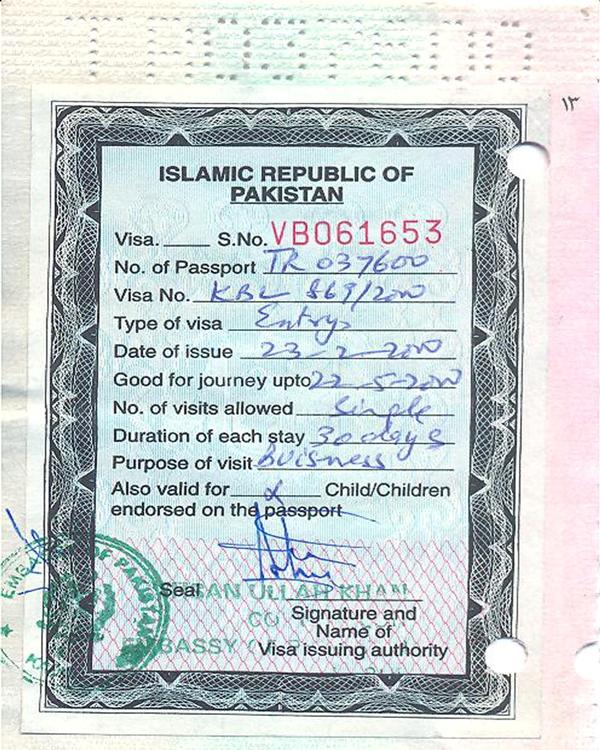 ١٣
ISLAMIC REPUBLIC OF
PAKISTAN
Visa. ____ S.No. VB061653
No. of Passport TR 037600
Visa No. KBL 869/2000
Type of visa Entry
Date of issue 23-2-2000
Good for journey upto 22-5-2000
No. of visits allowed Single
Duration of each stay 30 days
Purpose of visit Buisness
Also valid for ____ Child/Children
endorsed on the passport
Seal
ULLAH KHAN
Signature and
Name of
EMBASSY
Visa issuing authority
OF PAKISTAN